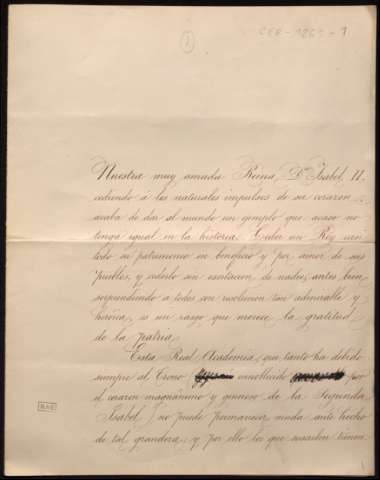 1
CER-1865-1
Nuestra muy amada Reina D.ª Isabel II
cediendo á los naturales impulsos de su corazon
acaba de dar al mundo un ejemplo que acaso no
tenga igual en la historia. Ceder un Rey casi
todo su patrimonio en beneficio y por amor de sus
pueblos, y cederlo sin escitacion de nadie, antes bien
sorprendiendo a todos con resolucion tan admirable y
heroica, es un rasgo que merece la gratitud
de la patria.
Esta Real Academia, que tanto ha debido
siempre al Trono ennoblecido por
el corazon magnánimo y generoso de la Segunda
Isabel, no puede permanecer muda ante hecho
de tal grandeza; y por ello los que suscriben tienen